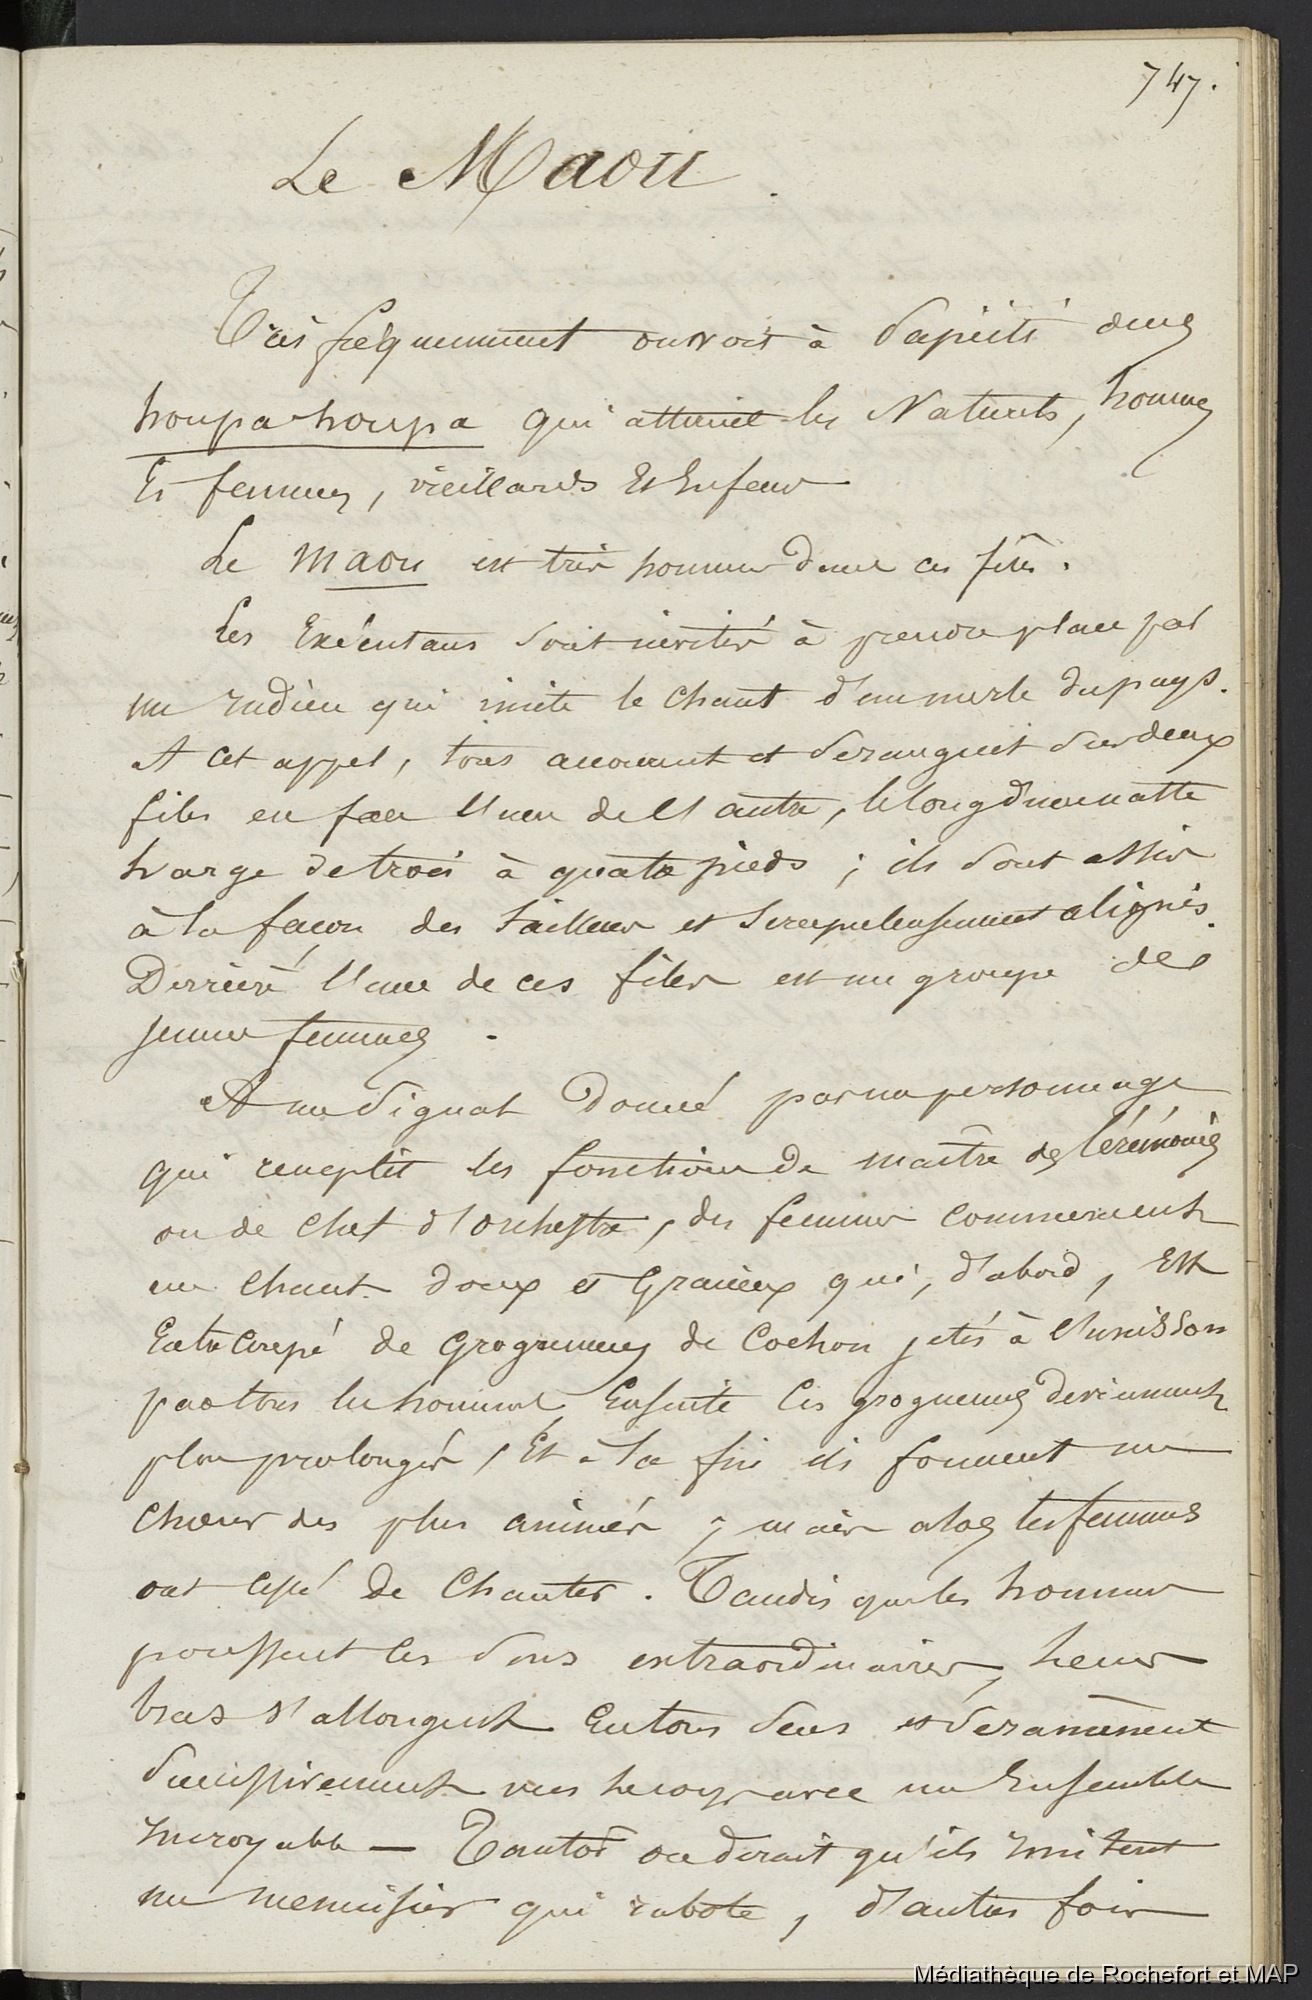 747.
Le Maou
Très fréquemment on voit à Papiéti des
houpa-houpa qui attirent les Naturels, hommes
Et femmes, vieillards Et Enfans
Le maou est très honneur dans ces fêtes.
Les Exécutans sont invités à prendre place par
un Indien qui imite le chant d'un merle du pays.
A cet appel, tous accourent et se rangent sur deux
files en face l'une de l'autre, le long d'une natte
large de trois à quatre pieds ; ils sont assis
à la façon des tailleurs et scrupuleusement alignés.
Derrière l'une de ces files est un groupe de
jeunes femmes.
A un signal donné par un personnage
qui remplit les fonctions de maître des Cérémonies
ou de chef d'orchestre, des femmes commencent
un chant doux et Gracieux qui, d'abord, Est
Entrecoupé de grognemens de Cochon jetés à l'unisson
par tous les hommes Ensuite les grognemens deviennent
plus prolongés, Et à la fin ils forment un
chœur des plus animés ; mais alors les femmes
ont cessé de chanter. Tandis que les hommes
poussent les sons extraordinaires, leurs
bras s'allongent En tous sens et se ramènent
successivement vers le corps avec un Ensemble
Incroyable — Tantôt on dirait qu'ils imitent
un menuisier qui rabote, d'autres fois
Médiathèque de Rochefort et MAP